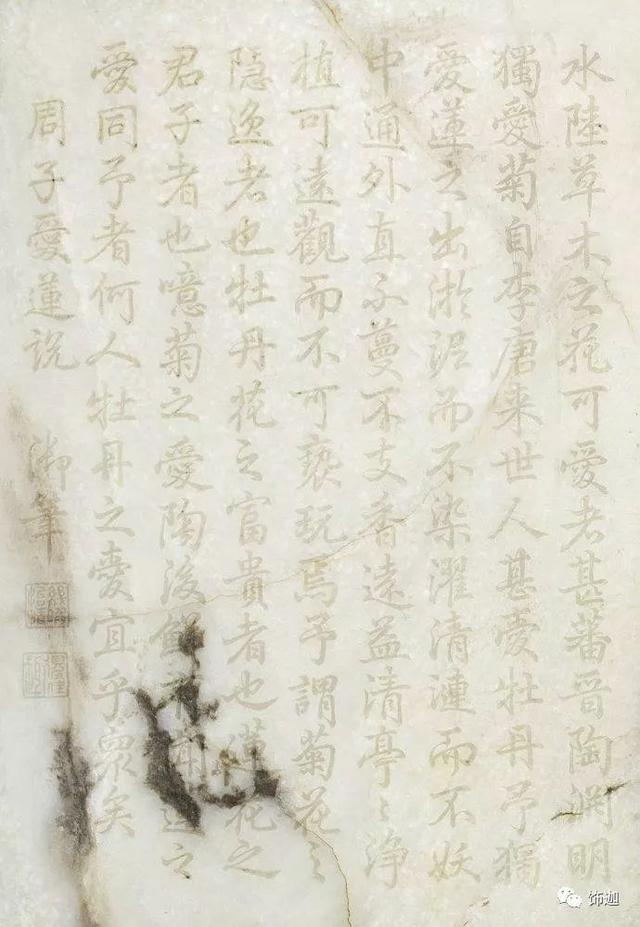 水陸草木之花可愛者甚蕃晉陶淵明
獨愛菊自李唐来世人甚愛牡丹予獨
愛蓮之出淤泥而不染濯清漣而不妖
中通外直不蔓不支香遠益清亭〻淨
植可遠觀而不可褻玩焉予謂菊花之
隱逸者也牡丹花之富貴者也蓮花之
君子者也噫菊之愛陶後鮮有聞蓮之
愛同予者何人牡丹之愛宜乎衆矣
周子愛蓮說
御筆
饰迦